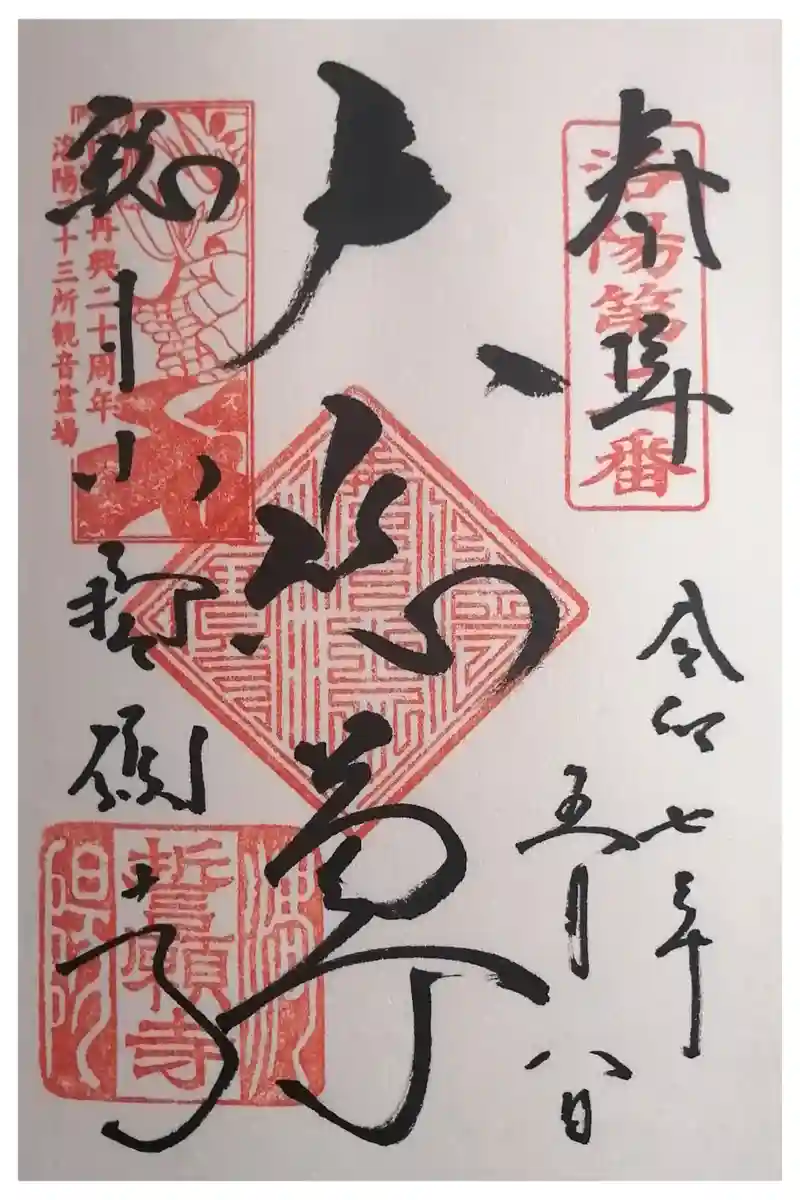 奉拝
洛陽第二番
令和七年
五月八日
大悲尊
再興二十周年
洛陽三十三所観音霊場
総本山誓願寺
誓願寺